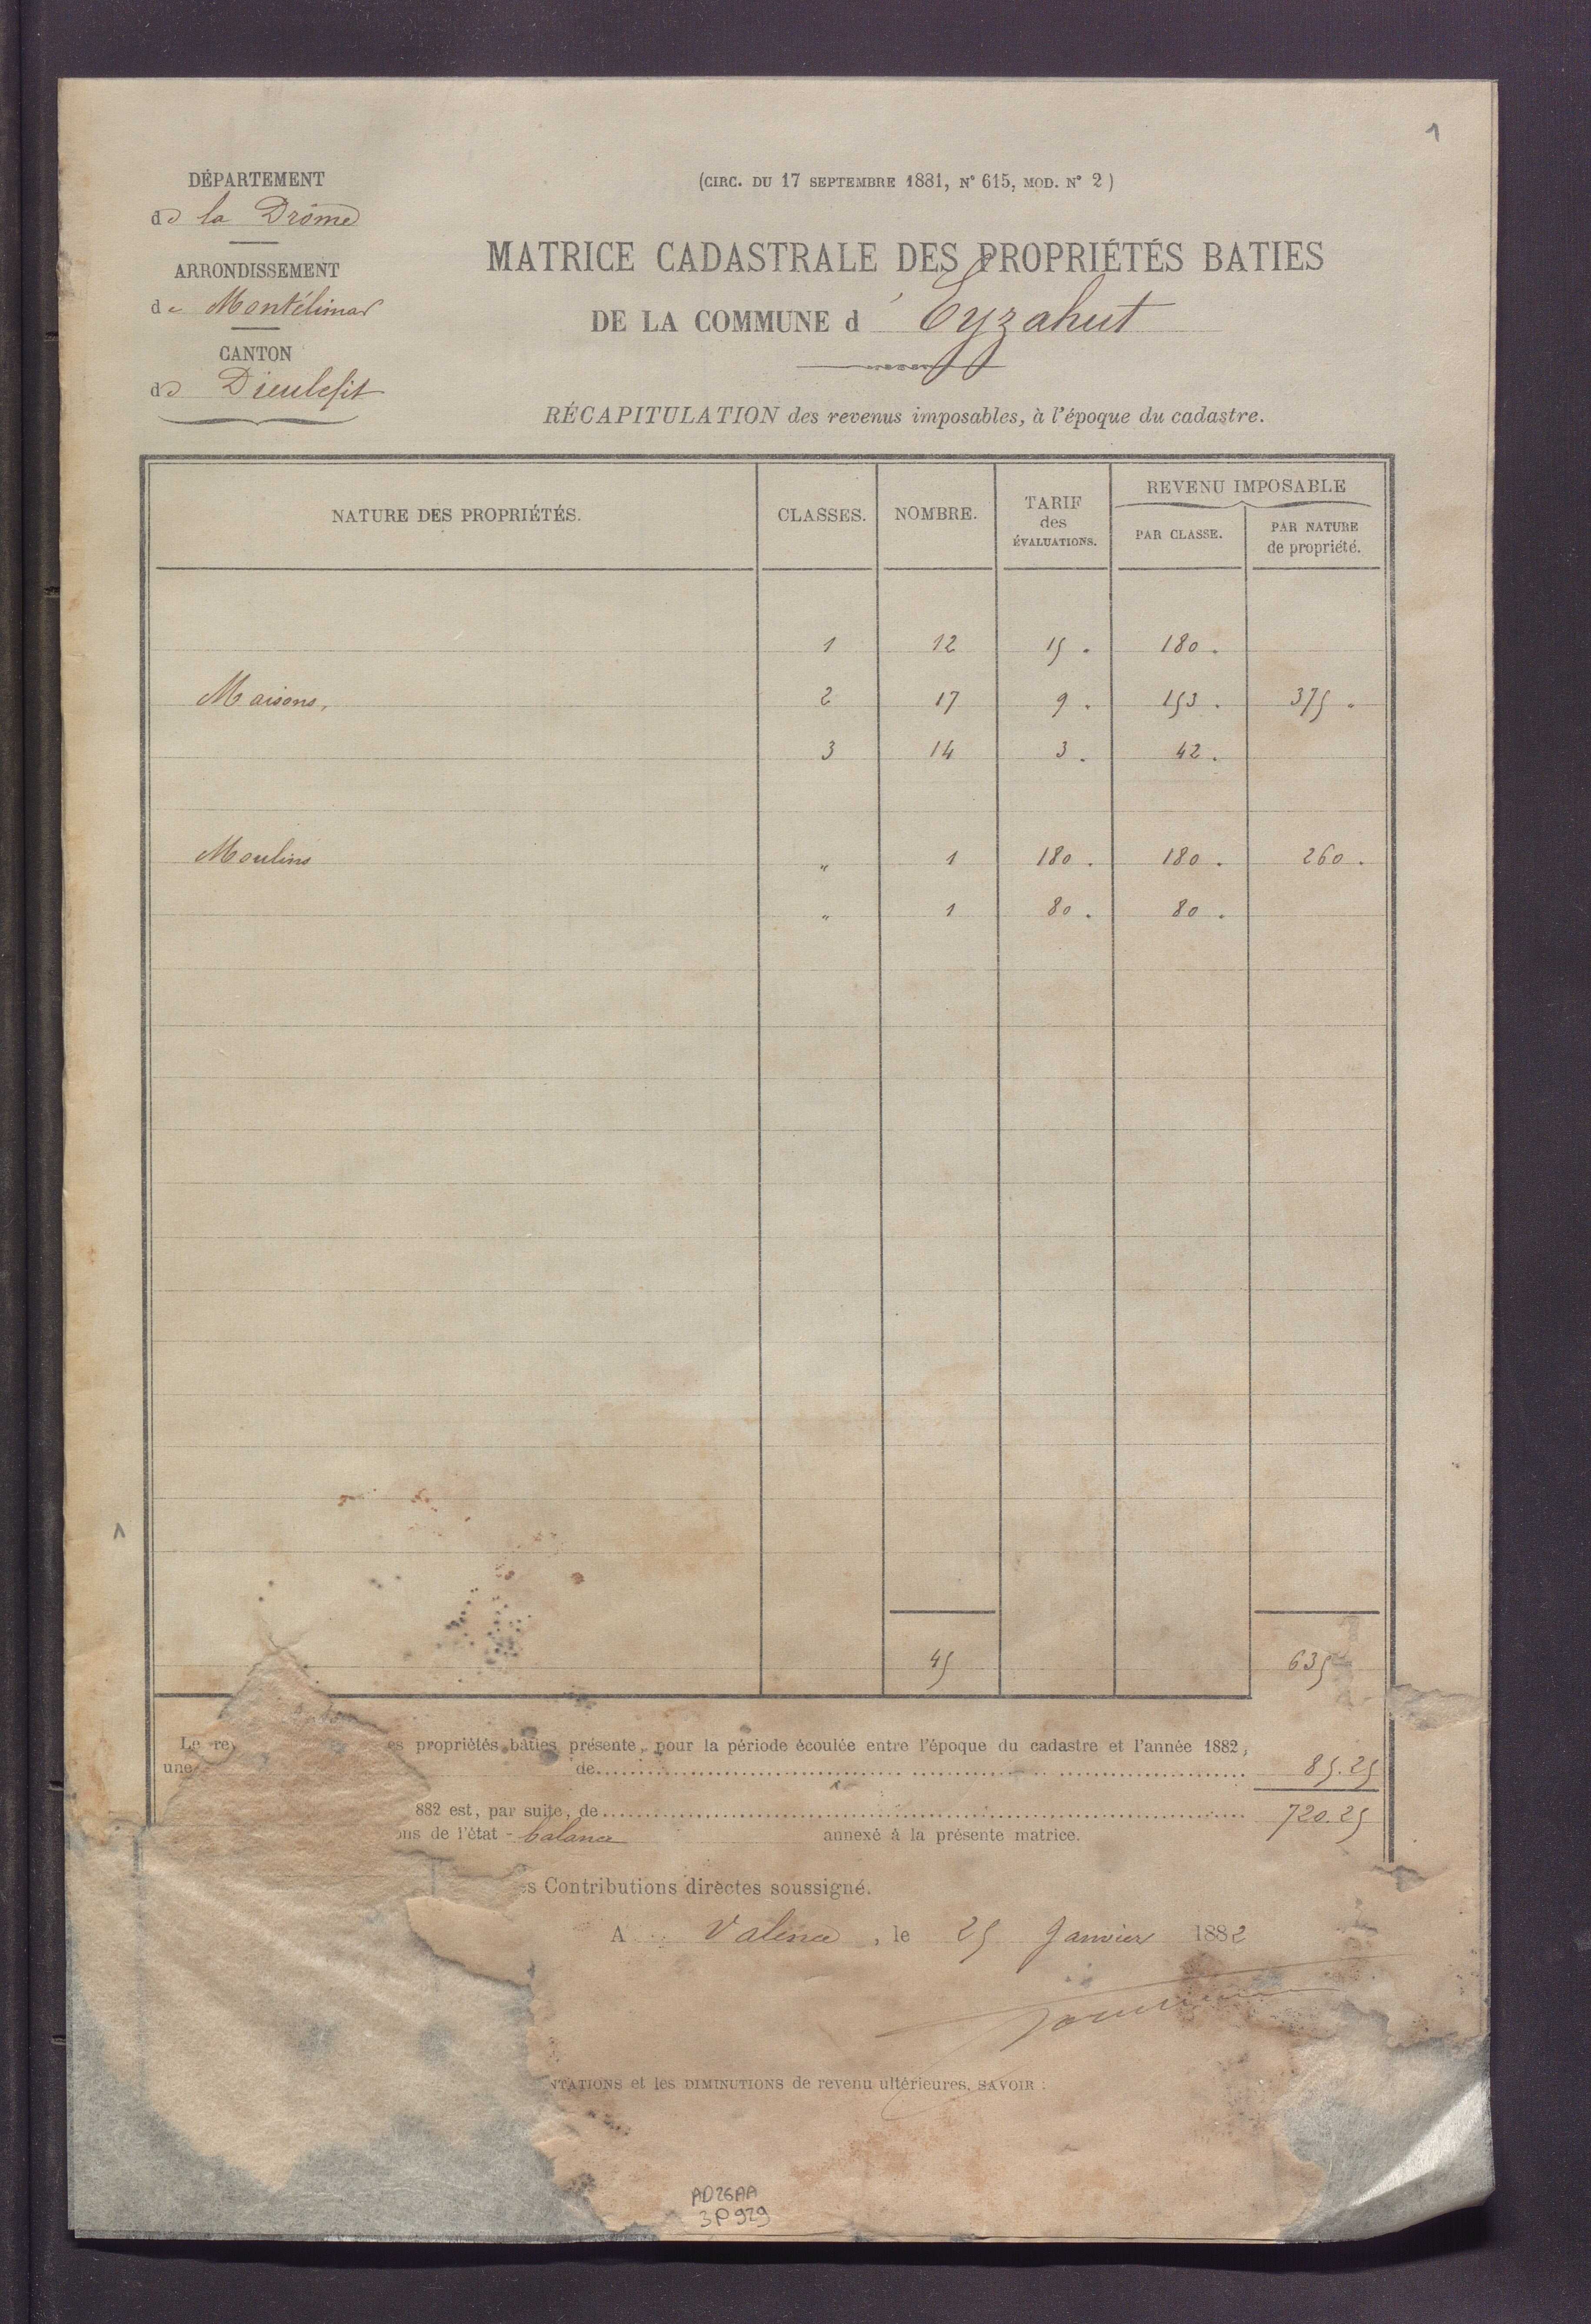 1
DÉPARTEMENT
de la Drôme
ARRONDISSEMENT
de Montélimar
CANTON
de Dieulefit
(CIRC. DU 17 SEPTEMBRE 1881, N° 615, MOD. N° 2)
MATRICE CADASTRALE DES PROPRIÉTÉS BATIES
DE LA COMMUNE d'Eyzahut
RÉCAPITULATION des revenus imposables, à l'époque du cadastre.
NATURE DES PROPRIÉTÉS. CLASSES. NOMBRE. TARIF des ÉVALUATIONS. REVENU IMPOSABLE
PAR CLASSE. PAR NATURE de propriété.
1 12 15. 180.
Maisons, 2 17 9. 153. 375.
3 14 3. 42.
Moulins " 1 180. 180. 260.
" 1 80. 80.
45 635
Le re es propriétés bâties présente, pour la période écoulée entre l'époque du cadastre et l'année 1882,
une de 85.25
882 est, par suite, de 720.25
ons de l'état - balance annexé à la présente matrice.
es Contributions directes soussigné.
A Valence, le 25 Janvier 1882
NTATIONS et les DIMINUTIONS de revenu ultérieures, SAVOIR :
AD26AA
3P929